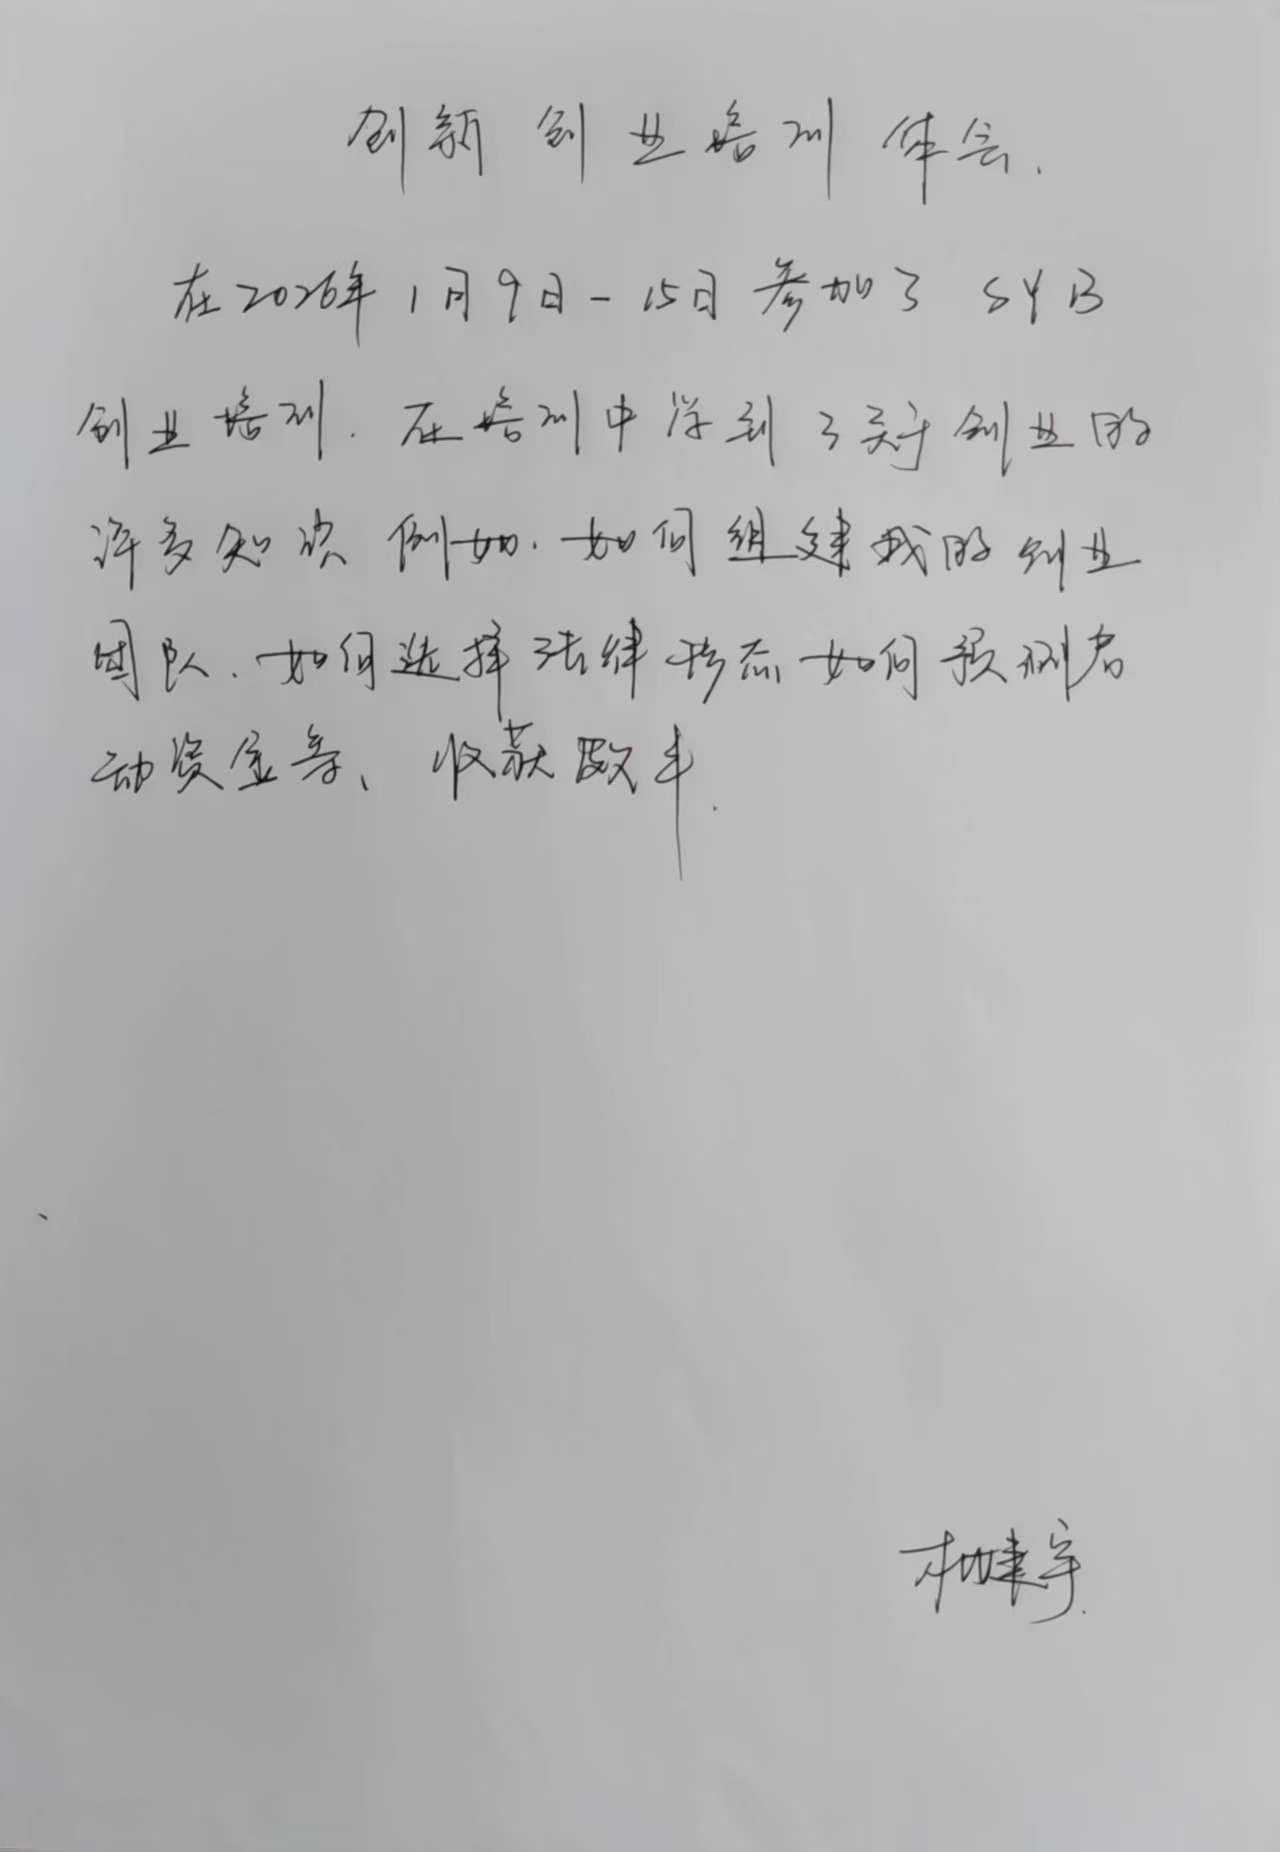 创新创业培训体会.
在2026年1月9日-15日参加了SYB
创业培训.在培训中学到了关于创业的
许多知识 例如.如何组建我的创业
团队.如何选择法律形态 如何预测启
动资金等、收获颇丰.
建宇.